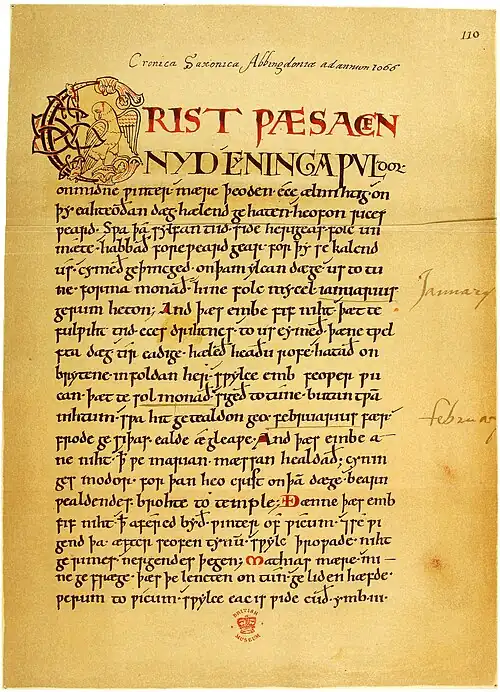 110
Cronica Saxonica, Abbingdoniæ ad annum 1066
CRIST ǷÆS ACEN
NYD CẎNINGA ǷVLDOR
on midne ƿinter· mære þeoden· ece ælmihtig· on
þẏ eahteoðan dæg· hælend gehaten· heofon rices
ƿeard· Sƿa þa sẏlfan tiid· side herigeas· folc un
mæte· habbað foreƿeard gear· for þẏ se kalend
us· cẏmeð geþincged· on þam ẏlcan dæge· us to tu
ne· forma monað· hine folc mẏcel· ianuarius
gerum heton; And þæs embe fif niht· þæt te
fulƿiht tiid· eces drihtnes· to us cẏmeð· þæne tƿel
fta dæg· tir eadige· hæleð heaðu rofe· hatað on
brẏtene· in foldan her· sƿẏlce emb feoƿer ƿu
can· þæt te sol monað· sigeð to tune· butan tƿam
nihtum· sƿa hit getealdon geo· februarius fær·
frode gesiþas· ealde ægleaƿe· And þæs embe a
ne niht· ꝥ ƿe marian· mæssan healdað· cẏnin
ges modor· for þan heo crist on þam dæge· bearn
ƿealdendes· brohte to temple; Ðænne þæs emb
fif niht· ꝥ afered bẏð· ƿinter of ƿicum· se ƿi
gend þa· æfter seofentẏnum· sƿẏlc þroƿade· niht
gerimes· nergendes þegen; Mathias mære· mi
ne gefræge· þæs þe lencten on tun· geliden hæfde·
ƿerum to ƿicum· sƿẏlce eac is ƿide cuð· ẏmb iii·
January
february
BRITISH
MUSEUM